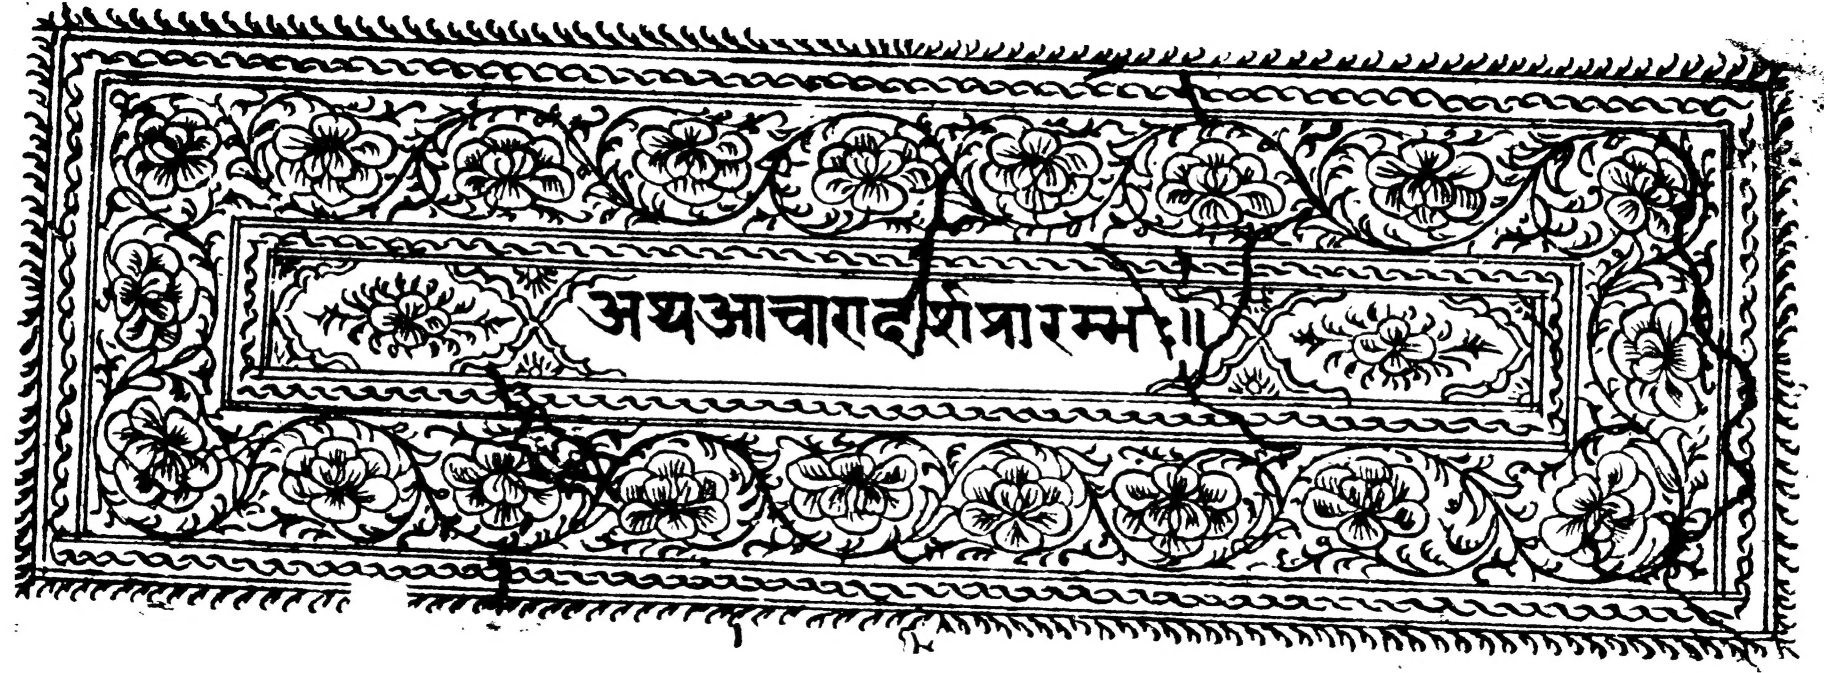 अथआचारादर्शप्रारम्भः॥